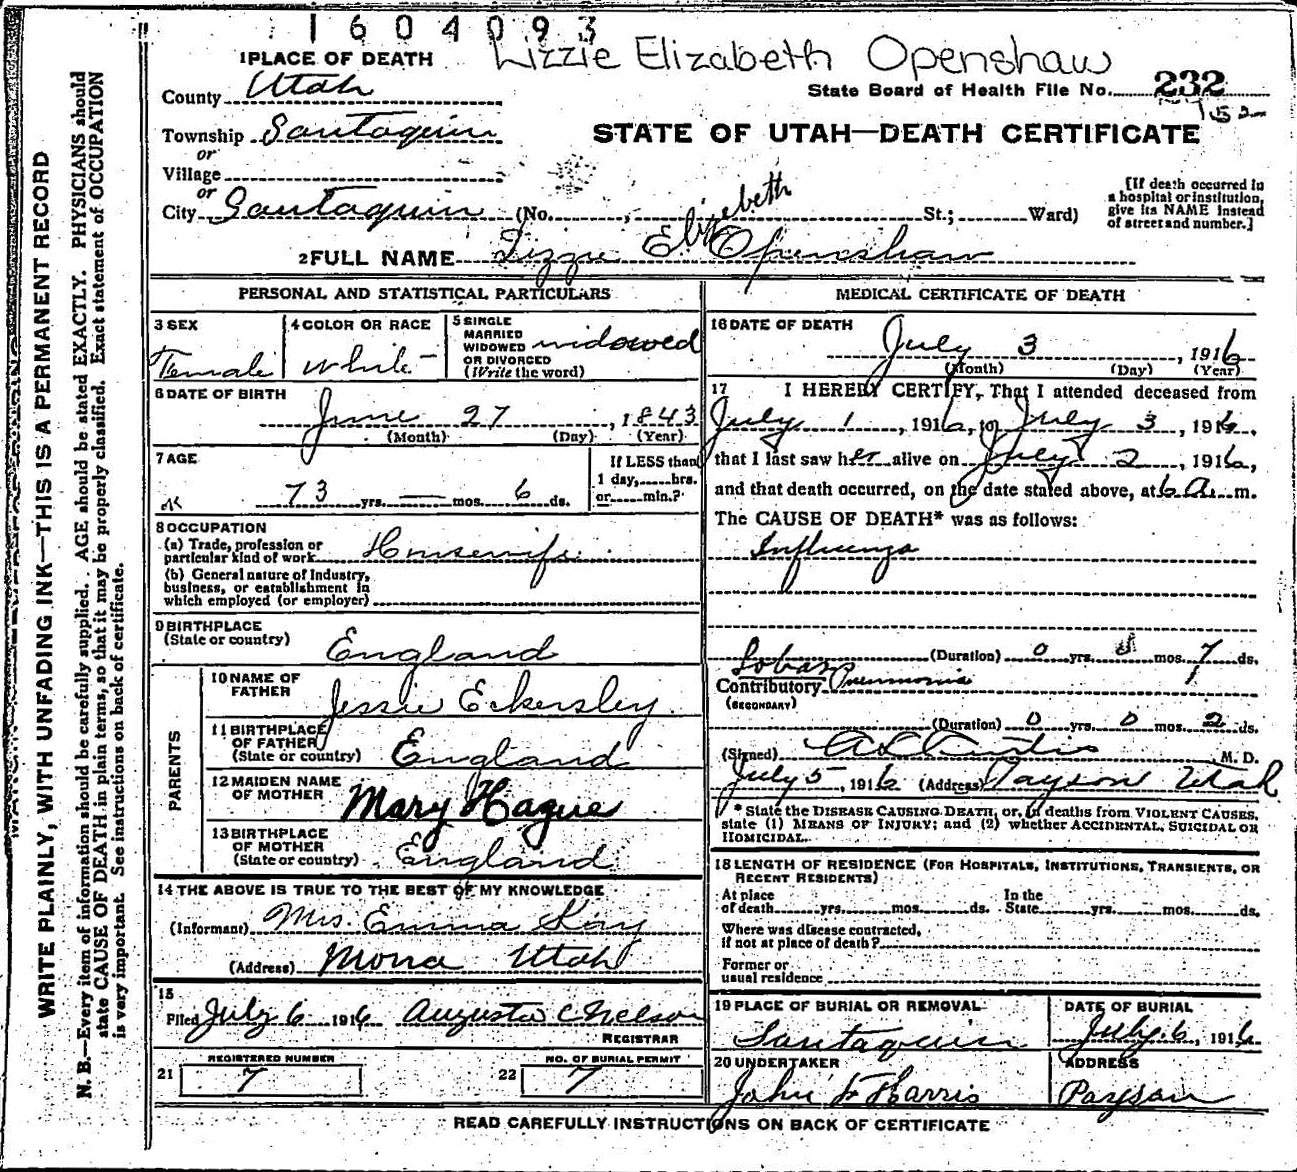 1604093
Lizzie Elizabeth Openshaw
1 PLACE OF DEATH
County Utah
State Board of Health File No. 232
152
Township Santaquin
or
Village
or
City Santaquin (No. , St.; Ward)
STATE OF UTAH—DEATH CERTIFICATE
[If death occurred in
a hospital or institution,
give its NAME instead
of street and number.]
Elizebeth
2 FULL NAME Lizzie E. Openshaw
PERSONAL AND STATISTICAL PARTICULARS
3 SEX
Female
4 COLOR OR RACE
White
5 SINGLE
MARRIED
WIDOWED
OR DIVORCED
(Write the word)
widowed
6 DATE OF BIRTH
June 27, 1843
(Month) (Day) (Year)
7 AGE
73 yrs. — mos. 6 ds.
If LESS than
1 day, hrs.
or min.?
8 OCCUPATION
(a) Trade, profession or
particular kind of work Housewife
(b) General nature of Industry,
business, or establishment in
which employed (or employer)
9 BIRTHPLACE
(State or country)
England
PARENTS
10 NAME OF
FATHER
Jessie Eckersley.
11 BIRTHPLACE
OF FATHER
(State or country)
England
12 MAIDEN NAME
OF MOTHER
Mary Hague
13 BIRTHPLACE
OF MOTHER
(State or country)
England
14 THE ABOVE IS TRUE TO THE BEST OF MY KNOWLEDGE
(Informant) Mrs. Emma Kay
(Address) Mona Utah
15
Filed July 6 1916 Augusta C Nelson
REGISTRAR
REGISTERED NUMBER
21 7
NO. OF BURIAL PERMIT
22 7
MEDICAL CERTIFICATE OF DEATH
16 DATE OF DEATH
July 3, 1916
(Month) (Day) (Year)
17 I HEREBY CERTIFY, That I attended deceased from
July 1, 1916, to July 3, 1916,
that I last saw her alive on July 2, 1916,
and that death occurred, on the date stated above, at 6 a. m.
The CAUSE OF DEATH* was as follows:
Influenza
(Duration) 0 yrs. mos. 7 ds.
Lobar
Contributory Pneumonia
(SECONDARY)
(Duration) 0 yrs. 0 mos. 2 ds.
(Signed) A L Curtis M. D.
July 5, 1916 (Address) Payson Utah
* State the DISEASE CAUSING DEATH, or, in deaths from VIOLENT CAUSES,
state (1) MEANS OF INJURY; and (2) whether ACCIDENTAL, SUICIDAL OR
HOMICIDAL.
18 LENGTH OF RESIDENCE (FOR HOSPITALS, INSTITUTIONS, TRANSIENTS, OR
RECENT RESIDENTS)
At place
of death yrs. mos. ds.
In the
State yrs. mos. ds.
Where was disease contracted,
if not at place of death?
Former or
usual residence
19 PLACE OF BURIAL OR REMOVAL
Santaquin
DATE OF BURIAL
July 6, 1916
20 UNDERTAKER
John F Harris
ADDRESS
Payson
READ CAREFULLY INSTRUCTIONS ON BACK OF CERTIFICATE
WRITE PLAINLY, WITH UNFADING INK—THIS IS A PERMANENT RECORD
N. B.—Every item of information should be carefully supplied. AGE should be stated EXACTLY. PHYSICIANS should
state CAUSE OF DEATH in plain terms, so that it may be properly classified. Exact statement of OCCUPATION
is very important. See instructions on back of certificate.